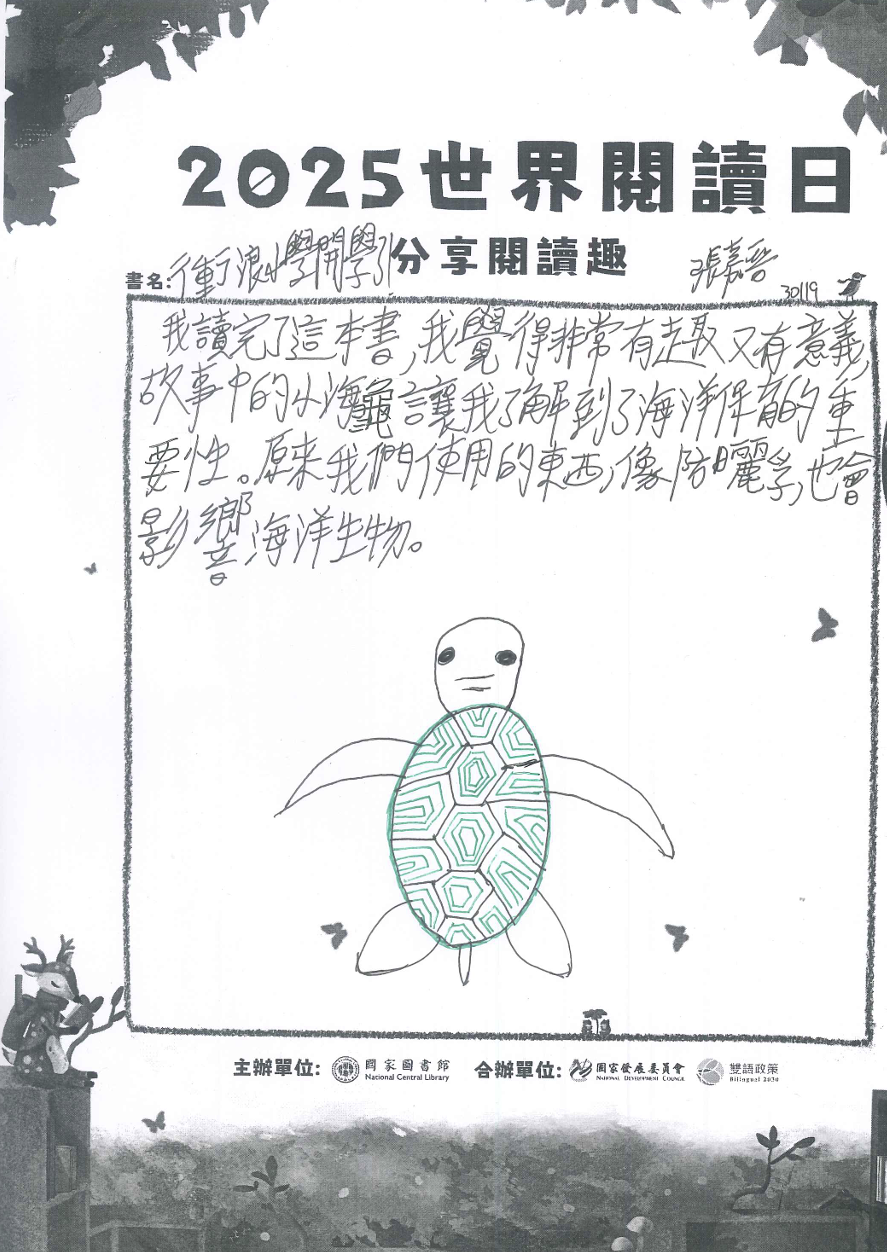 2025世界閱讀日
分享閱讀趣
書名:衝浪小學開學引
張嘉晉
30119
我讀完了這本書,我覺得非常有趣又有意義,
故事中的小海龜讓我了解到了海洋保育的重
要性。原來我們使用的東西,像防曬乳,也會
影響海洋生物。
主辦單位: 國家圖書館 合辦單位: 國家發展委員會 雙語政策
National Central Library National Development Council Bilingual 2030